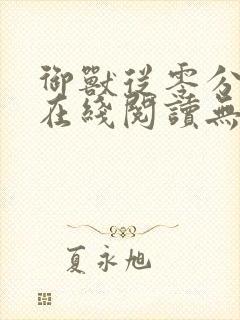 御獸從零分
在綫閱讀無
夏永旭